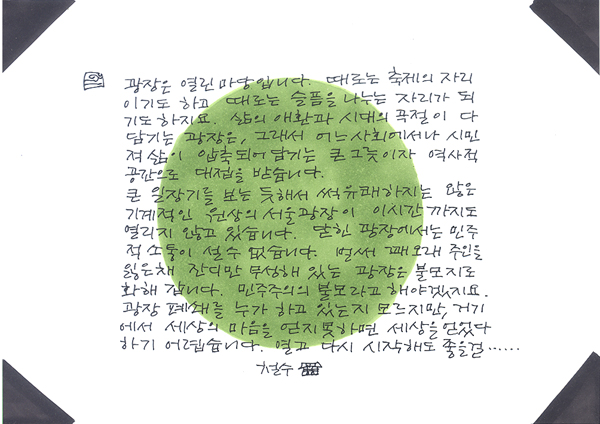 광장은 열린 마당입니다. 때로는 축제의 자리
이기도 하고 때로는 슬픔을 나누는 자리가 되
기도 하지요. 삶의 애환과 시대의 곡절이 다
담기는 광장은, 그래서 어느사회에서나 시민
적 삶이 압축되어 담기는 큰 그릇이자 역사적
공간으로 대접을 받습니다.
큰 일장기를 보는 듯해서 썩유쾌하지는 않은
기계적인 원상의 서울광장이 이시간까지도
열리지 않고 있습니다. 닫힌 광장에서는 민주
적 소통이 설 수 없습니다. 벌써 꽤오래 주인을
잃은채 잔디만 무성해 있는 광장은 불모지로
화해 갑니다. 민주주의의 불모라고 해야겠지요.
광장 폐쇄를 누가 하고 있는지 모르지만, 거기
에서 세상의 마음을 얻지못하면 세상을 얻었다
하기 어렵습니다. 열고 다시 시작해도 좋을걸......
철수